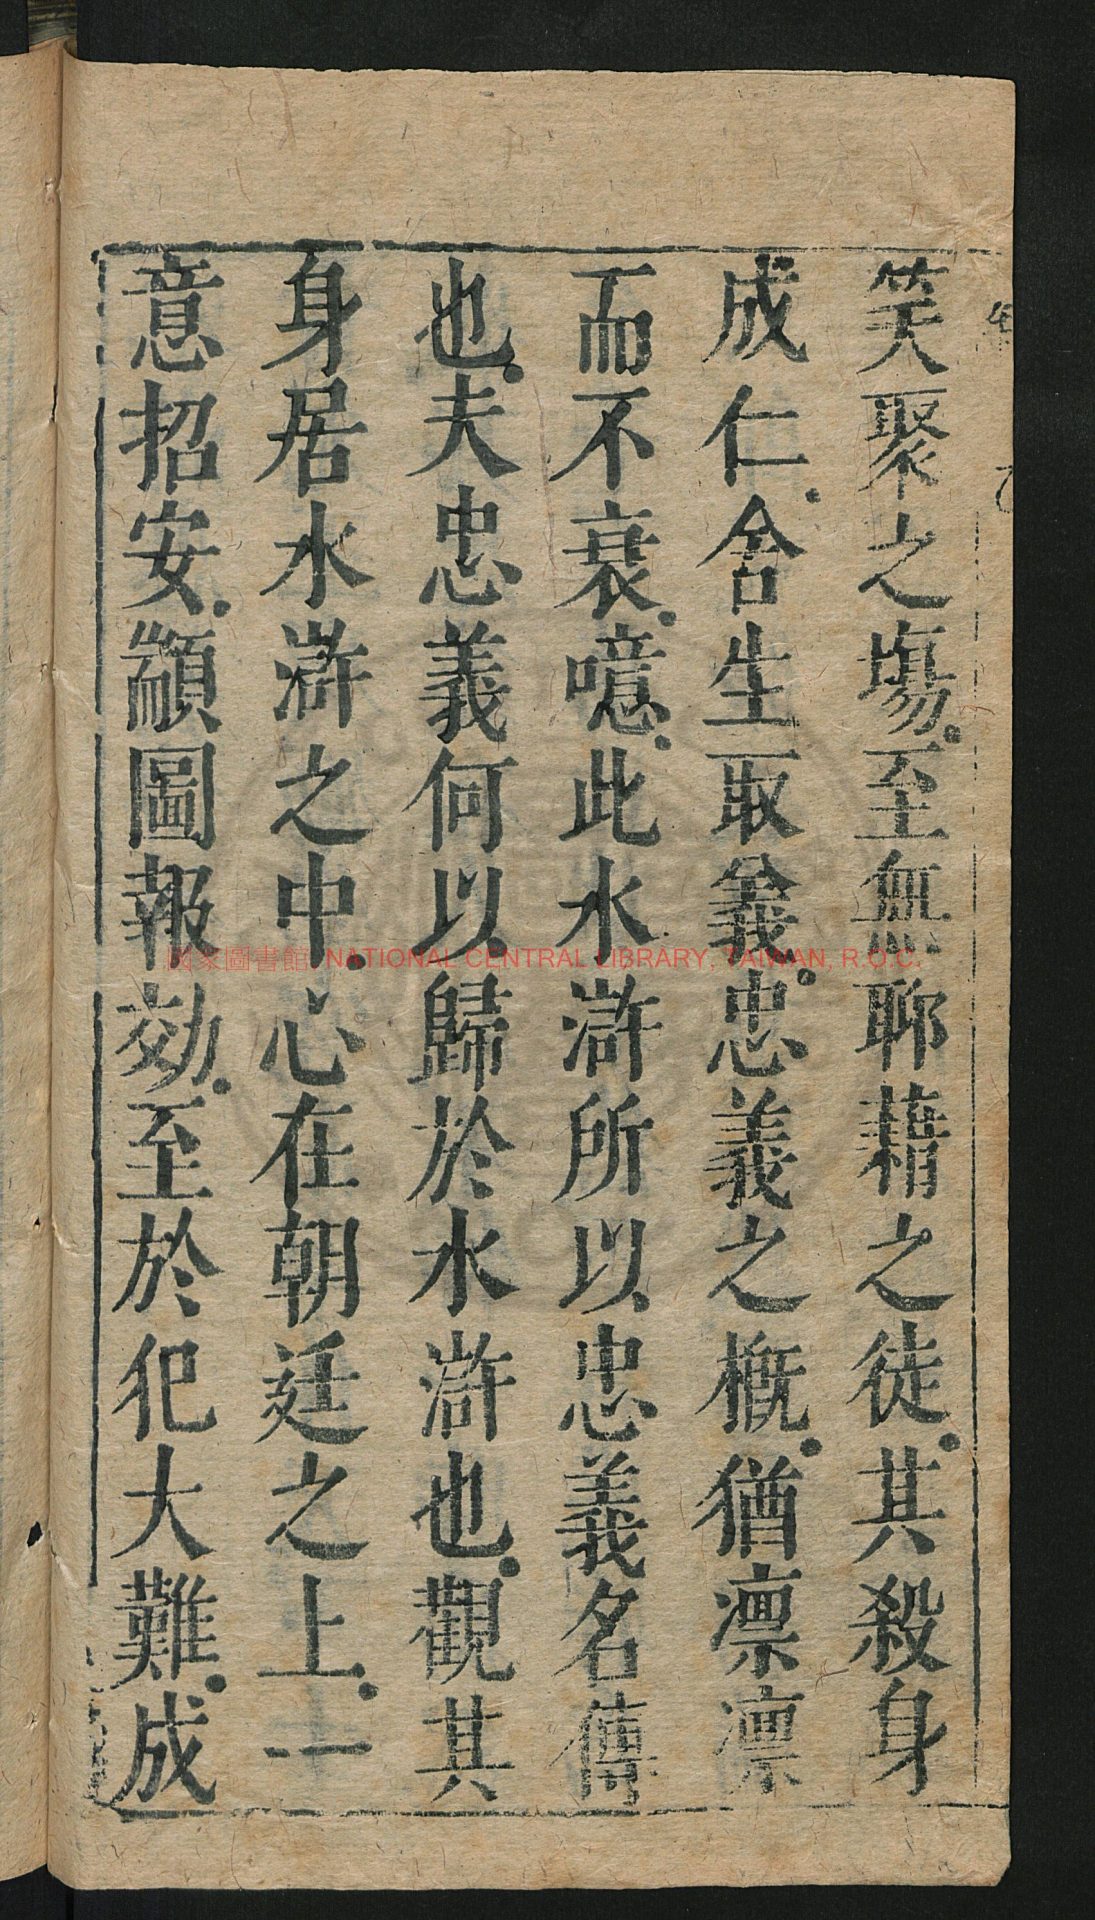 笑聚之塲。至無聊藉之徒。其殺身
成仁。舍生取義。忠義之槪。猶凛凛
而不衰。噫。此水滸所以忠義名傳
也。夫忠義何以歸於水滸也。觀其
身居水滸之中。心在朝廷之上。一
意招安。顓圖報効。至於犯大難。成
國家圖書館 NATIONAL CENTRAL LIBRARY, TAIWAN, R.O.C.